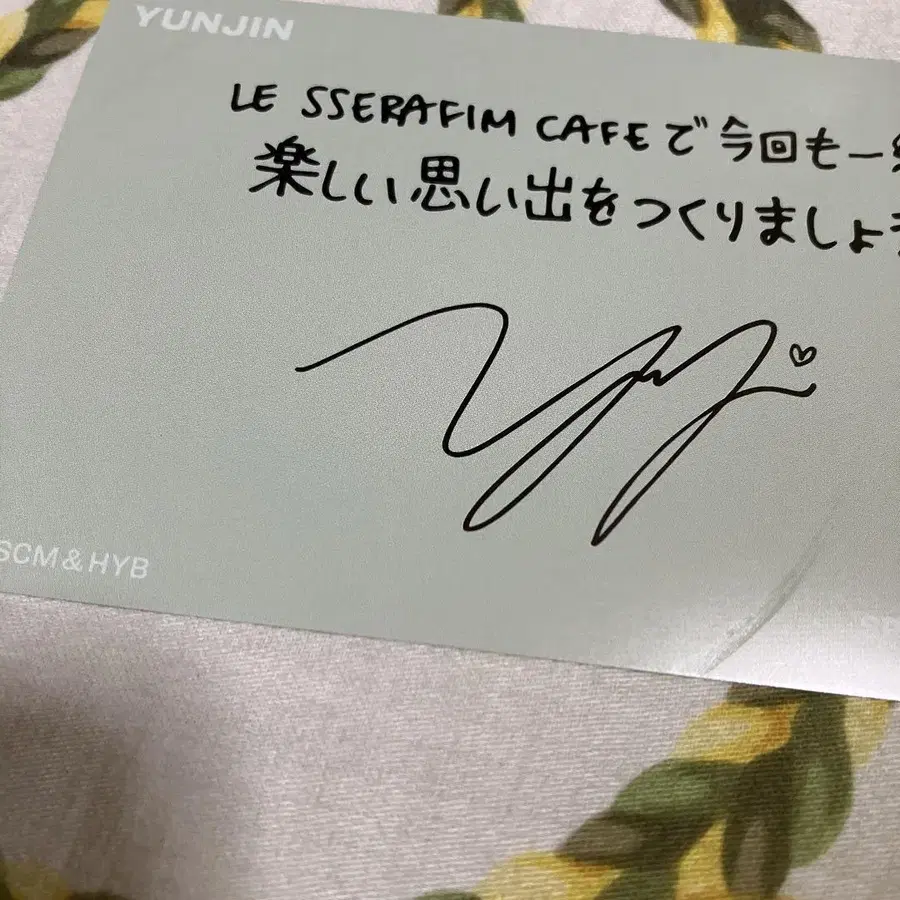 YUNJIN
LE SSERAFIM CAFEで今回も一
楽しい思い出をつくりましょ
SCM & HYB